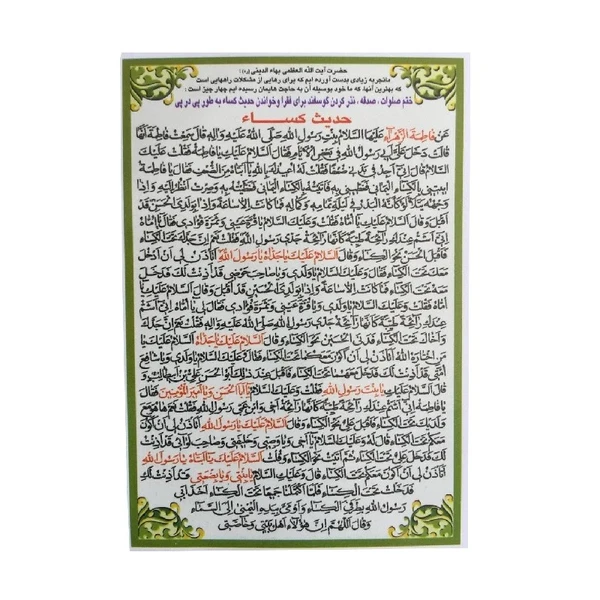 حضرت آیت الله العظمی بهاء الدینی (ره) :
ما تجربه زیادی بدست آورده ایم که برای رهایی از مشکلات راههایی است
که بهترین آنها، که ما خود بوسیله آن به حاجت هایمان رسیدیم چهار چیز است :
ختم صلوات ، صدقه ، نذر کردن گوسفند برای فقرا و خواندن حدیث کساء به طور پی در پی
حدیث کساء
عَن فاطِمَةَ الزَّهراءِ عَلَیهَا السَّلامُ بِنتِ رَسُولِ اللهِ صَلَّی اللهُ عَلَیهِ وَآلِهِ قالَ سَمِعتُ فاطِمَةَ أنَّها
قالَت دَخَلَ عَلَیَّ أبی رَسُولُ اللهِ فی بَعضِ الأیّامِ فَقالَ السَّلامُ عَلَیکِ یا فاطِمَةُ فَقُلتُ عَلَیکَ
السَّلامُ قالَ إنّی أجِدُ فی بَدَنی ضُعفاً فَقُلتُ لَهُ أُعیذُکَ بِاللهِ یا أبَتاهُ مِنَ الضُّعفِ فَقالَ یا فاطِمَةُ
إیتینی بِالکِساءِ الیَمانی فَغَطّینی بِهِ فَأتَیتُهُ بِالکِساءِ الیَمانی فَغَطَّیتُهُ بِهِ وَصِرتُ أنظُرُ إلَیهِ وَإذا
وَجهُهُ یَتَلَألَأُ کَأنَّهُ البَدرُ فی لَیلَةِ تَمامِهِ وَکَمالِهِ فَما کانَت إلّا ساعَةً وَإذا بِوَلَدِیَ الحَسَنِ قَد
أقبَلَ وَقالَ السَّلامُ عَلَیکِ یا أُمّاهُ فَقُلتُ وَعَلَیکَ السَّلامُ یا قُرَّةَ عَینی وَثَمَرَةَ فُؤادی فَقالَ یا أُمّاهُ
إنّی أشَمُّ عِندَکِ رائِحَةً طَیِّبَةً کَأنَّها رائِحَةُ جَدّی رَسُولِ اللهِ فَقُلتُ نَعَم إنَّ جَدَّکَ تَحتَ الکِساءِ
فَأقبَلَ الحَسَنُ نَحوَ الکِساءِ وَقالَ السَّلامُ عَلَیکَ یا جَدّاهُ یا رَسُولَ اللهِ أتَأذَنُ لی أن أدخُلَ
مَعَکَ تَحتَ الکِساءِ فَقالَ وَعَلَیکَ السَّلامُ یا وَلَدی وَیا صاحِبَ حَوضی قَد أذِنتُ لَکَ فَدَخَلَ
مَعَهُ تَحتَ الکِساءِ فَما کانَت إلّا ساعَةً وَإذا بِوَلَدِیَ الحُسَینِ قَد أقبَلَ وَقالَ السَّلامُ عَلَیکِ یا
أُمّاهُ فَقُلتُ وَعَلَیکَ السَّلامُ یا وَلَدی وَیا قُرَّةَ عَینی وَثَمَرَةَ فُؤادی فَقالَ لی یا أُمّاهُ إنّی أشَمُّ
عِندَکِ رائِحَةً طَیِّبَةً کَأنَّها رائِحَةُ جَدّی رَسُولِ اللهِ صَلَّی اللهُ عَلَیهِ وَآلِهِ فَقُلتُ نَعَم إنَّ جَدَّکَ
وَأخاکَ تَحتَ الکِساءِ فَدَنَی الحُسَینُ نَحوَ الکِساءِ وَقالَ السَّلامُ عَلَیکَ یا جَدّاهُ السَّلامُ عَلَیکَ یا
مَنِ اختارَهُ اللهُ أتَأذَنُ لی أن أکُونَ مَعَکُما تَحتَ الکِساءِ فَقالَ وَعَلَیکَ السَّلامُ یا وَلَدی وَیا شافِعَ
أُمَّتی قَد أذِنتُ لَکَ فَدَخَلَ مَعَهُما تَحتَ الکِساءِ فَأقبَلَ عِندَ ذلِکَ أبُو الحَسَنِ عَلِیُّ بنُ أبی طالِبٍ وَ
قالَ السَّلامُ عَلَیکِ یا بِنتَ رَسُولِ اللهِ فَقُلتُ وَعَلَیکَ السَّلامُ یا أبَا الحَسَنِ وَیا أمیرَ المُؤمِنینَ فَقالَ
یا فاطِمَةُ إنّی أشَمُّ عِندَکِ رائِحَةً طَیِّبَةً کَأنَّها رائِحَةُ أخی وَابنِ عَمّی رَسُولِ اللهِ فَقُلتُ نَعَم ها هُوَ مَعَ
وَلَدَیکَ تَحتَ الکِساءِ فَأقبَلَ عَلِیٌّ نَحوَ الکِساءِ وَقالَ السَّلامُ عَلَیکَ یا رَسُولَ اللهِ أتَأذَنُ لی أن أکُونَ
مَعَکُم تَحتَ الکِساءِ قالَ لَهُ وَعَلَیکَ السَّلامُ یا أخی وَیا وَصِیّی وَخَلیفَتی وَصاحِبَ لِوائی قَد أذِنتُ
لَکَ فَدَخَلَ عَلِیٌّ تَحتَ الکِساءِ ثُمَّ أتَیتُ نَحوَ الکِساءِ وَقُلتُ السَّلامُ عَلَیکَ یا أبَتاهُ یا رَسُولَ اللهِ
أتَأذَنُ لی أن أکُونَ مَعَکُم تَحتَ الکِساءِ قالَ وَعَلَیکِ السَّلامُ یا بِنتی وَیا بَضعَتی قَد أذِنتُ لَکِ
فَدَخَلتُ تَحتَ الکِساءِ فَلَمَّا اکتَمَلنا جَمیعاً تَحتَ الکِساءِ أخَذَ أبی
رَسُولُ اللهِ بِطَرَفَیِ الکِساءِ وَأومَئَ بِیَدِهِ الیُمنی إلَی السَّماءِ
وَقالَ اللّهُمَّ إنَّ هؤُلاءِ أهلُ بَیتی وَخاصَّتی